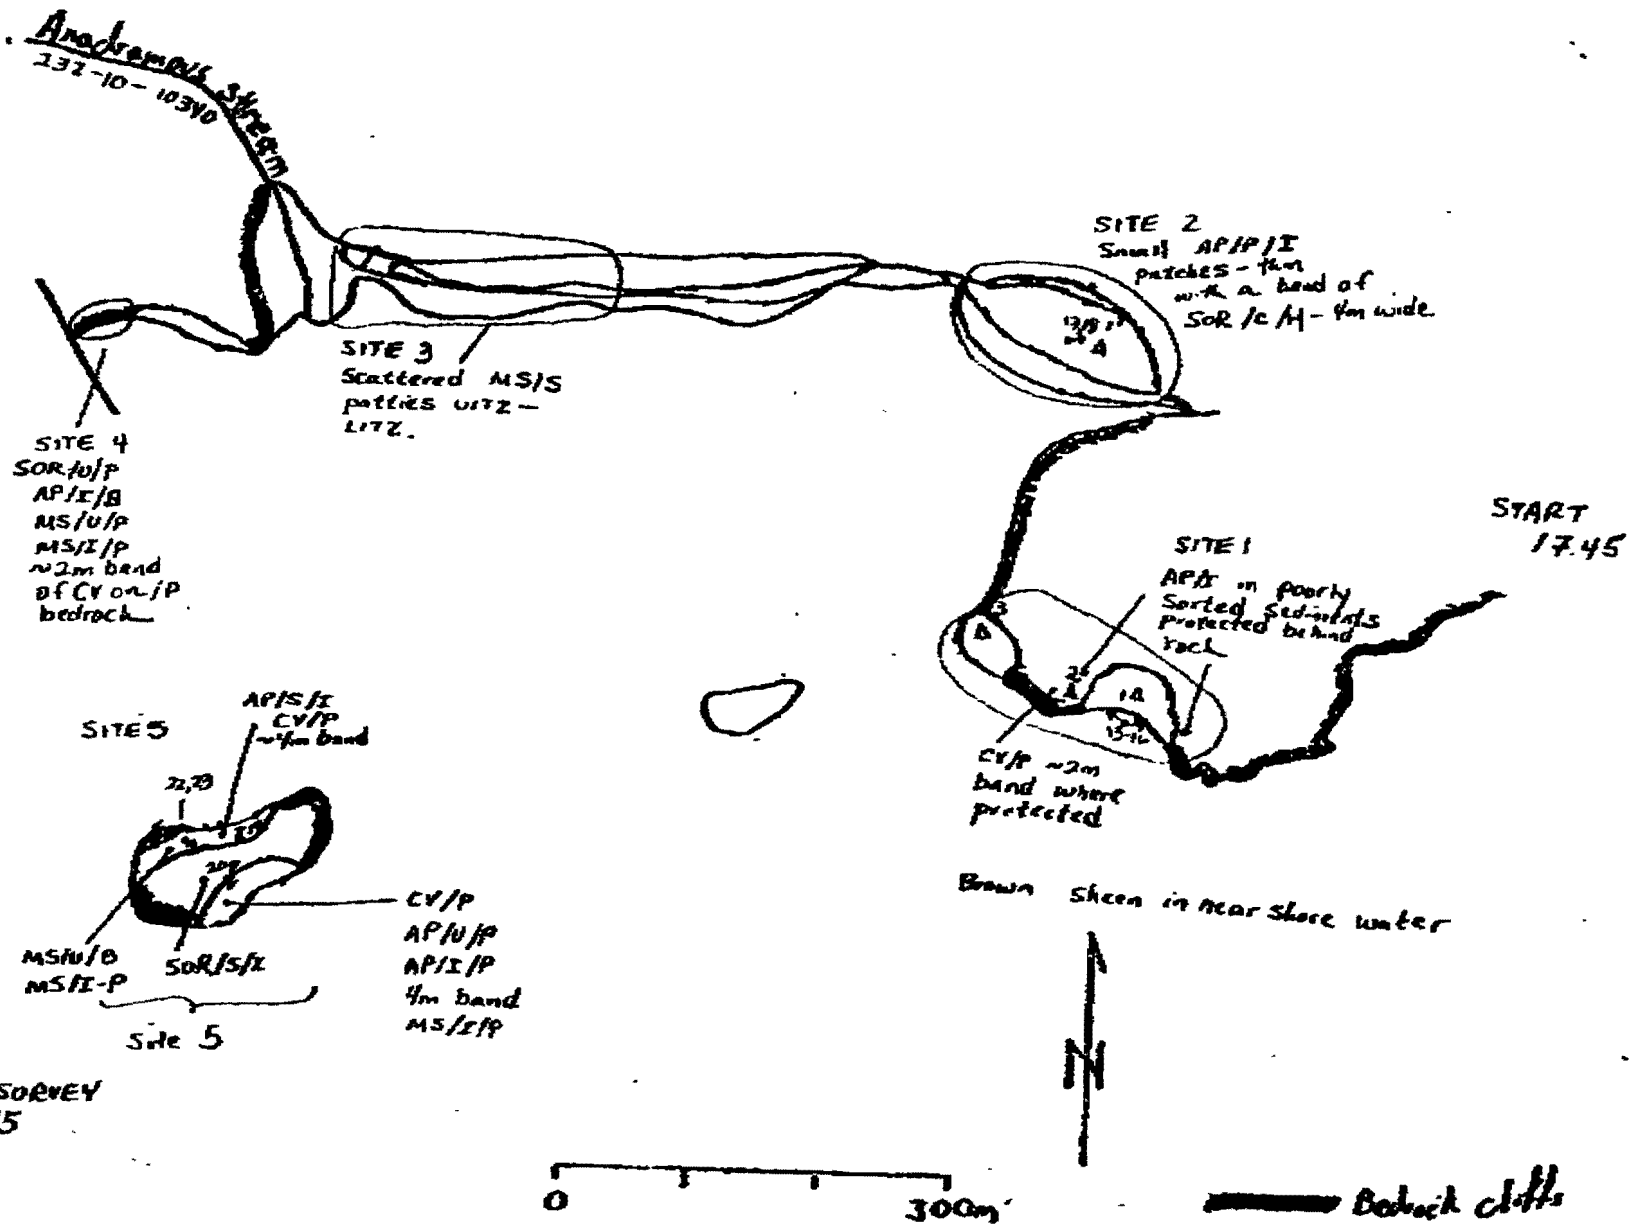 Anadromous Stream
232-10-10340
SITE 2
Small AP/P/I
patches - thin
with a band of
SOR/C/H - 4m wide
SITE 3
Scattered MS/S
patties UITZ -
LITZ.
SITE 4
SOR/U/P
AP/I/B
MS/U/P
MS/I/P
~2m band
of CV on/P
bedrock
START
17.45
SITE 1
AP/I in poorly
Sorted Sediments
protected behind
rock
3
2
1A
CV/P ~2m
band where
protected
SITE 5
AP/S/I
CV/P
~4m band
22,23
MS/U/B
MS/I-P
SOR/S/I
Site 5
CV/P
AP/U/P
AP/I/P
4m band
MS/I/P
Brown Sheen in near shore water
N
SURVEY
0
300m
Bedrock cliffs